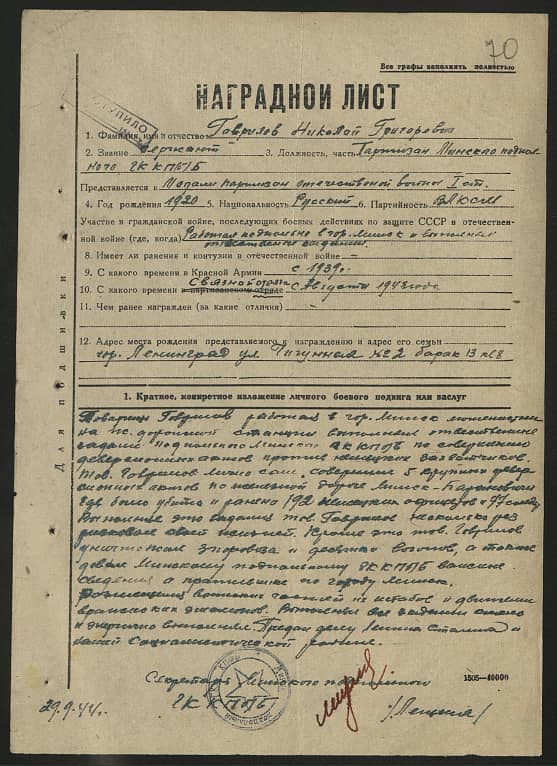 70
Все графы заполнять полностью
НАГРАДНОЙ ЛИСТ
1. Фамилия, имя и отчество Гаврилов Николай Григорьевич
2. Звание Сержант 3. Должность, часть Партизан Минского подполь
ного ГК КП/б/Б
Представляется к Медали партизан отечественой войны I ст.
4. Год рождения 1920 5. Национальность Русский 6. Партийность ВЛКСМ
Участие в гражданской войне, последующих боевых действиях по защите СССР и отечествен-
ной войне (где, когда) Работал подпольно в гор. Минск и выполнял
ответственные задания.
8. Имеет ли ранения и контузии в отечественной войне —
9. С какого времени в Красной Армии с 1939г.
Связной отряда
10. С какого времени в партизанском отряде с Августа 1943 года
11. Чем ранее награжден (за какие отличия)
12. Адрес места рождения представляемого к награждению и адрес его семьи
гор. Ленинград ул. №2 барак 13 кв 8
Для подшивки
1. Краткое, конкретное изложение личного боевого подвига или заслуг
Товарищ Гаврилов работая в гор. Минск
на ж. дорожной станции выполнял ответственные
задания подпольного Минского ГК КП/б/Б по совершению
диверсионных актов против немецких захватчиков.
Тов. Гаврилов лично сам совершил 5 крупных дивер
сионных актов по железной дороге Минск-Барановичи
где было убито и ранено 192 немецких офицеров и 77 солдат
Выполняя это задание тов. Гаврилов несколько раз
рисковал своей жизнью. Кроме это тов. Гаврилов
уничтожил 3 паровоза и десятки вагонов, а также
давал Минскому подпольному ГК КП/б/Б
сведения о противнике по городу Минск.
Размещения воинских частей их штабов и движении
вражеских эшелонов. Выполнял все задания смело
и энергично. Предан делу Ленина Сталина и
нашей Социалистической родине.
Секретарь Минского подпольного
ГК КП/б/Б
1505—10000
29.9.44г.